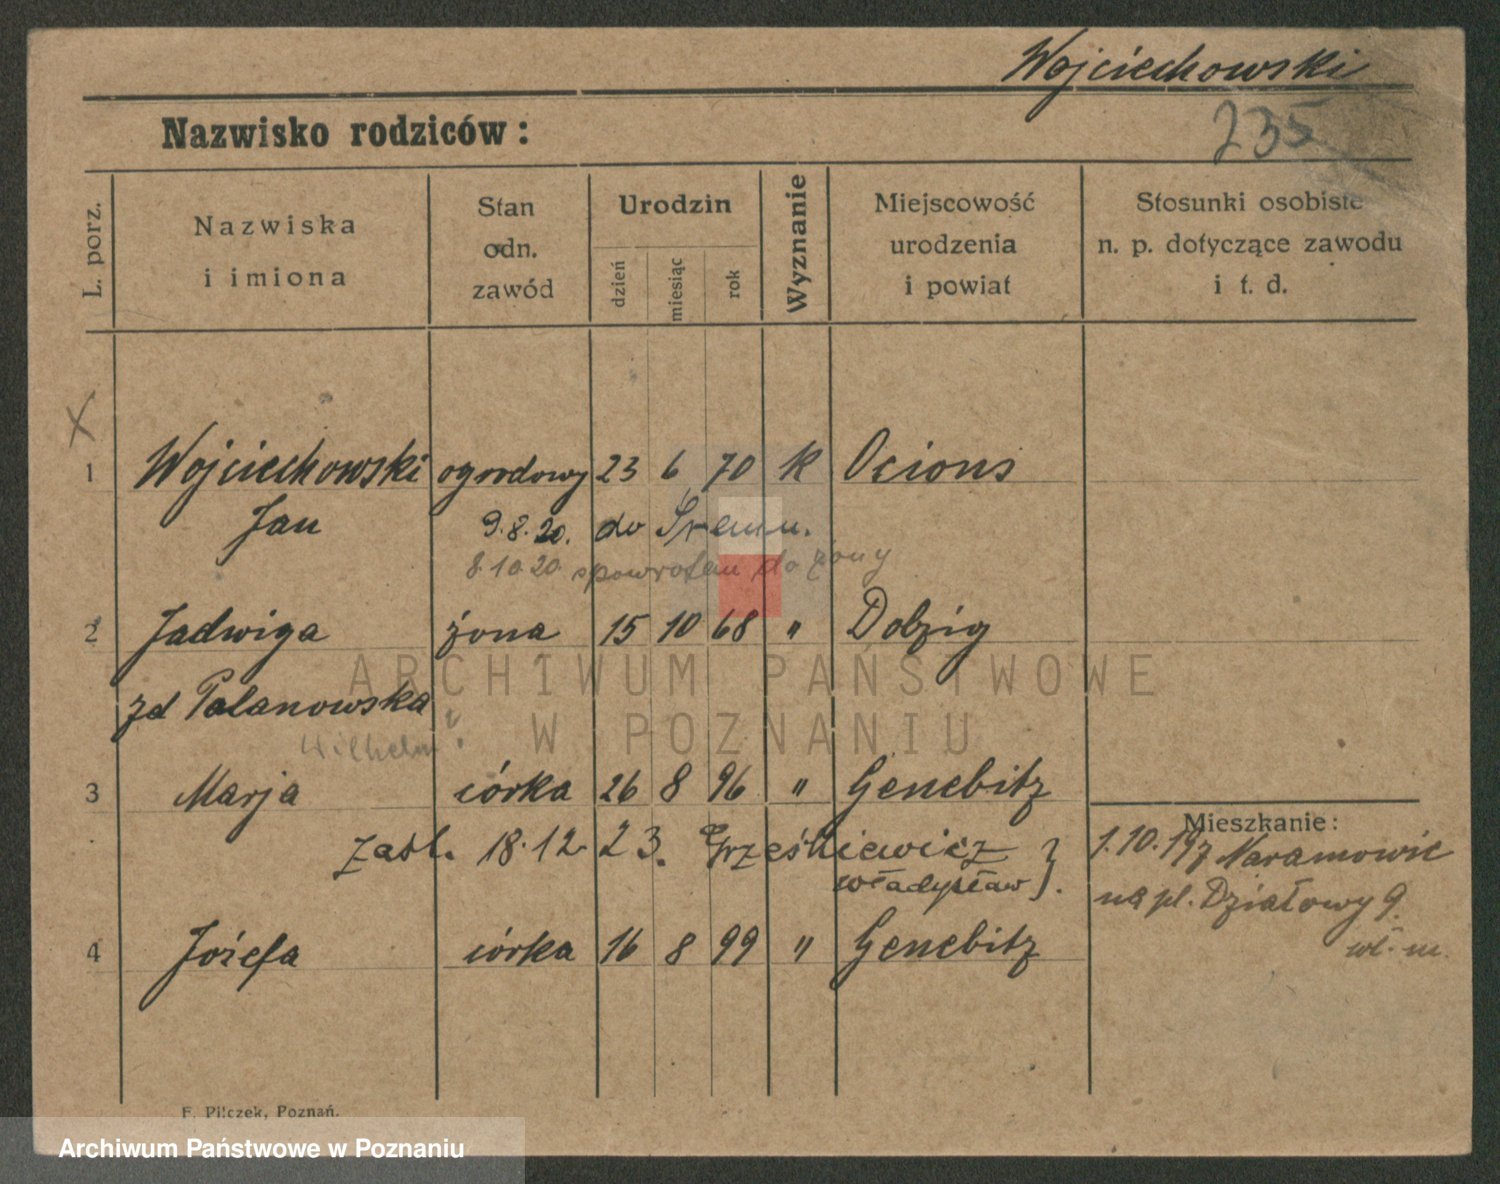 Wojciechowski
235
Nazwisko rodziców:
L. porz.
Nazwiska
i imiona
Stan
odn.
zawód
Urodzin
dzień
miesiąc
rok
Wyznanie
Miejscowość
urodzenia
i powiat
Stosunki osobiste
n. p. dotyczące zawodu
i t. d.
X
1 Wojciechowski ogrodowy 23 6 70 k Ocions
Jan 9.8.20. do Śremu.
8.10.20 spowrotem do żony
2 Jadwiga żona 15 10 68 " Dolzig
zd Polanowska
Wilhelm
ARCHIWUM PAŃSTWOWE
W POZNANIU
3 Marja córka 26 8 96 " Genebitz
zaśl. 18.12. 23. Grześkiewicz }
Władysław } .
4 Józefa córka 16 8 99 " Genebitz
Mieszkanie:
1.10.197 Naramowic
na pl. Działowy 9.
wł. m.
F. Pilczek, Poznań.
Archiwum Państwowe w Poznaniu